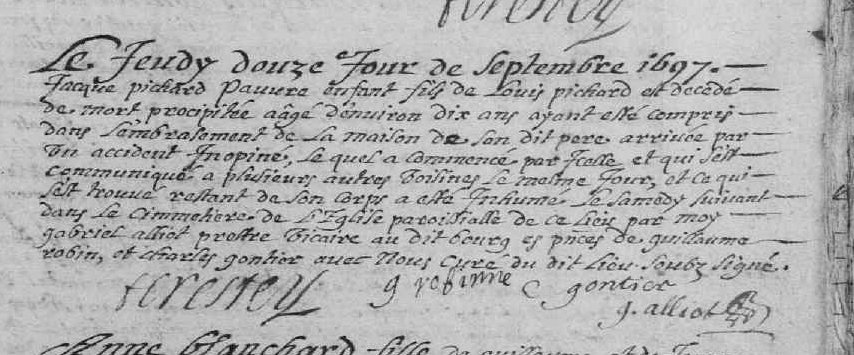 Le Jeudy douze Jour de Septembre 1697.
Jacque pichard Pauvre enfant fils de Louis pichard est decedé
de mort precipitée aâgé d'environ dix ans ayant esté compris
dans l'ambrasement de la maison de son dit pere arrivée par
Un accident Inopiné, le quel a commencé par Icelle et qui s'est
communiqué a plusieurs autres Voisines le mesme Jour, et ce qui
s'est trouvé restant de son corps a esté Inhumé le samedy suivant
dans le cimmetiere de L'Eglise paroissialle de ce lieu par moy
gabriel alliot prestre Vicaire au dit bourg es pnces de guillaume
robin, et charles gontier avec Nous Curé du dit Lieu soubz signé.
g robinne C gontier
g. alliot
Anne blanchard fille de guillaume et de